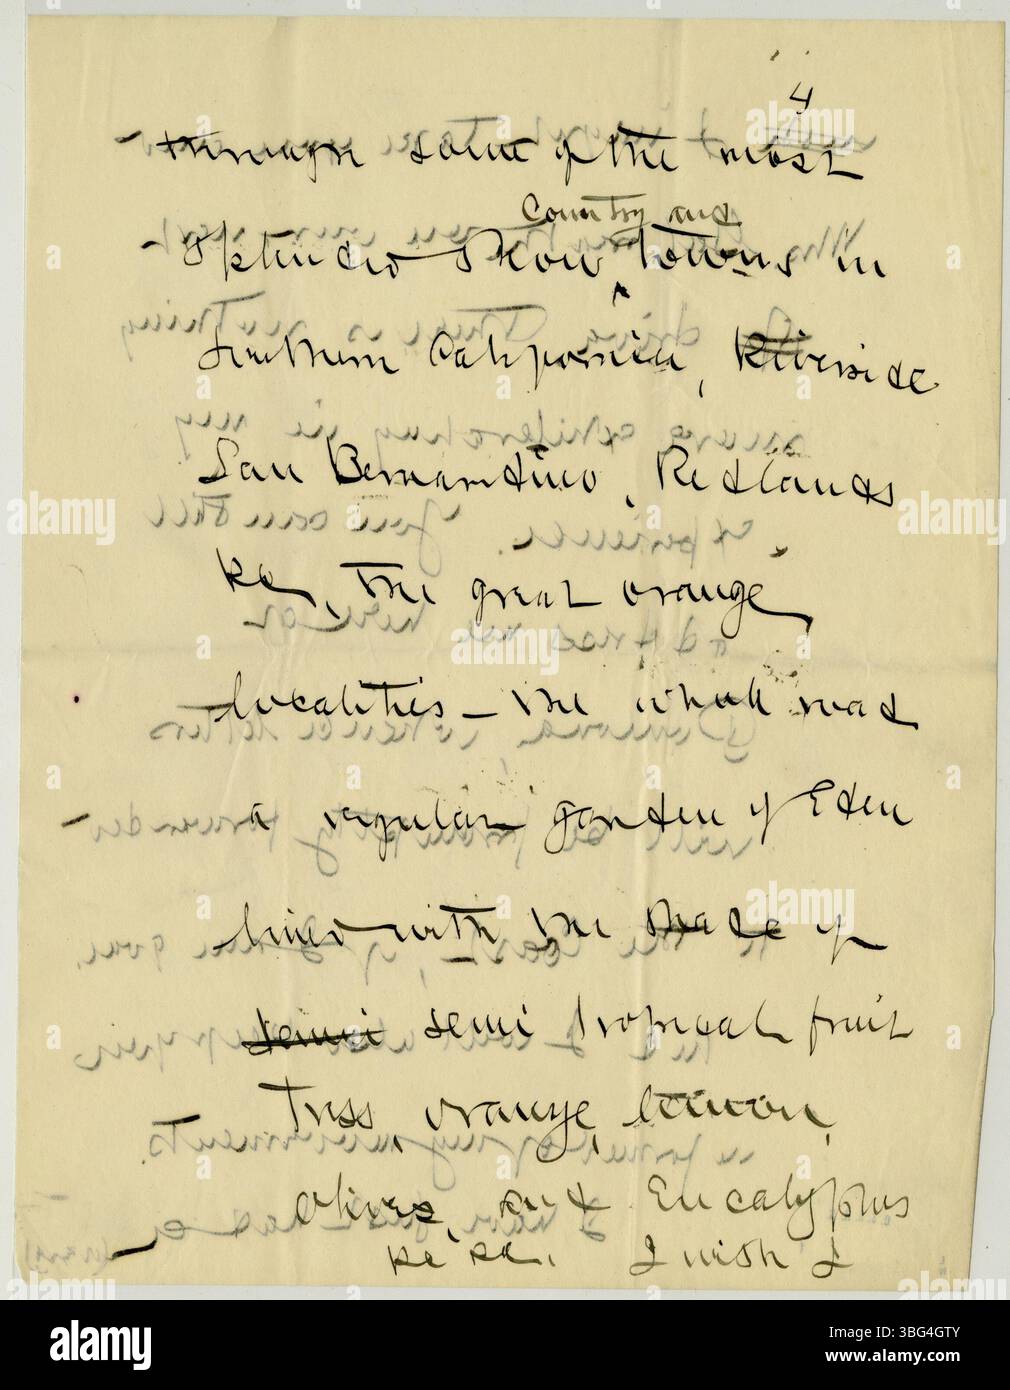 4
through some of the most
Country and
Splendid Show ^ towns in
Southern California, Riverside
San Bernardino, Redlands
&c, the great orange
localities – the whole road
a regular garden of Eden
lined with the shade of
semi semi tropical fruit
Trees, orange, lemon,
olives, and Eucalyptus
&c &c. I wish I
alamy
Image ID: 3BG4GTY
www.alamy.com